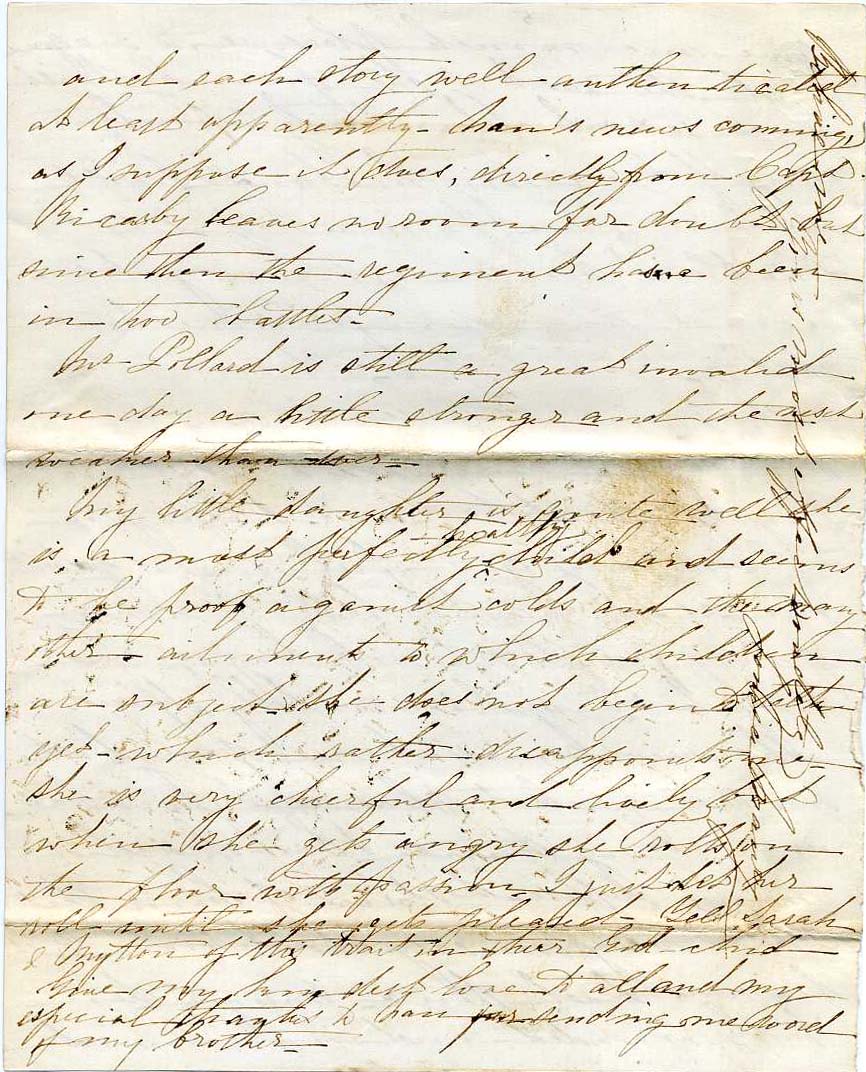 and each story well authenticated
At least apparently - Nan's news coming,
as I suppose it does, directly from Capt.
Bicarby leaves no room for doubt but
since then the regiment have been
in two battles -
Mr Pollard is still a great invalid
one day a little stronger and the next
weaker than ever -
My little daughter is quite well she
healthy
is a most perfectly child and seems
to be proof against colds and the many
other ailments to which children
are subject. She does not begin to teeth
yet - which rather disappoints me -
She is very cheerful and lively but
when she gets angry she rolls on
the floor with passion I just let her
roll until she gets pleased - Tell Sarah
& Mytton of this trait in their God child
Give my kindest love to all and my
especial thanks to Nan for sending me word
of my brother -
Yours most affectionately